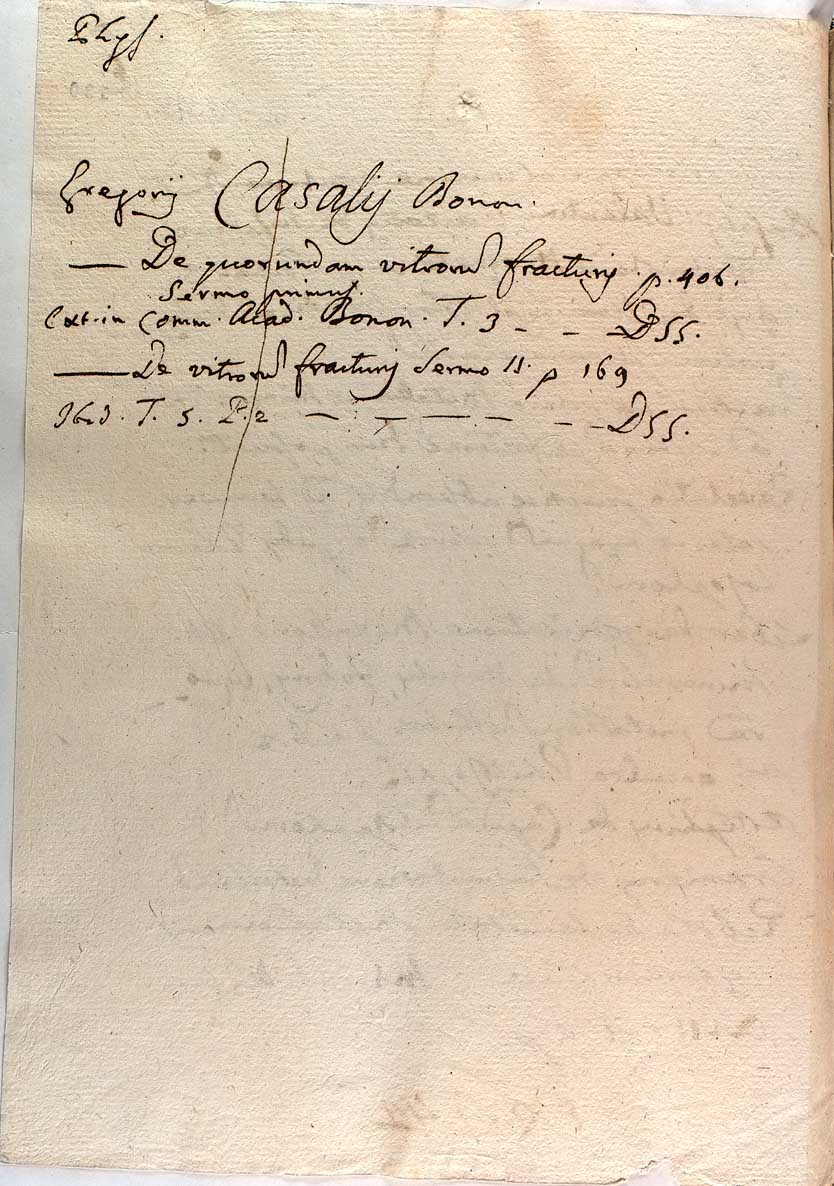 Phys.
Gregorij Casalij Bonon.
— De quorundam vitrorū fracturis p. 406.
Sermo primus.
Ext. in Comm. Acad. Bonon. T. 3 — — — DSS.
— De vitrorū fracturis Sermo II. p 169
Ibid. T. 5. P. 2 — — — — — — DSS.